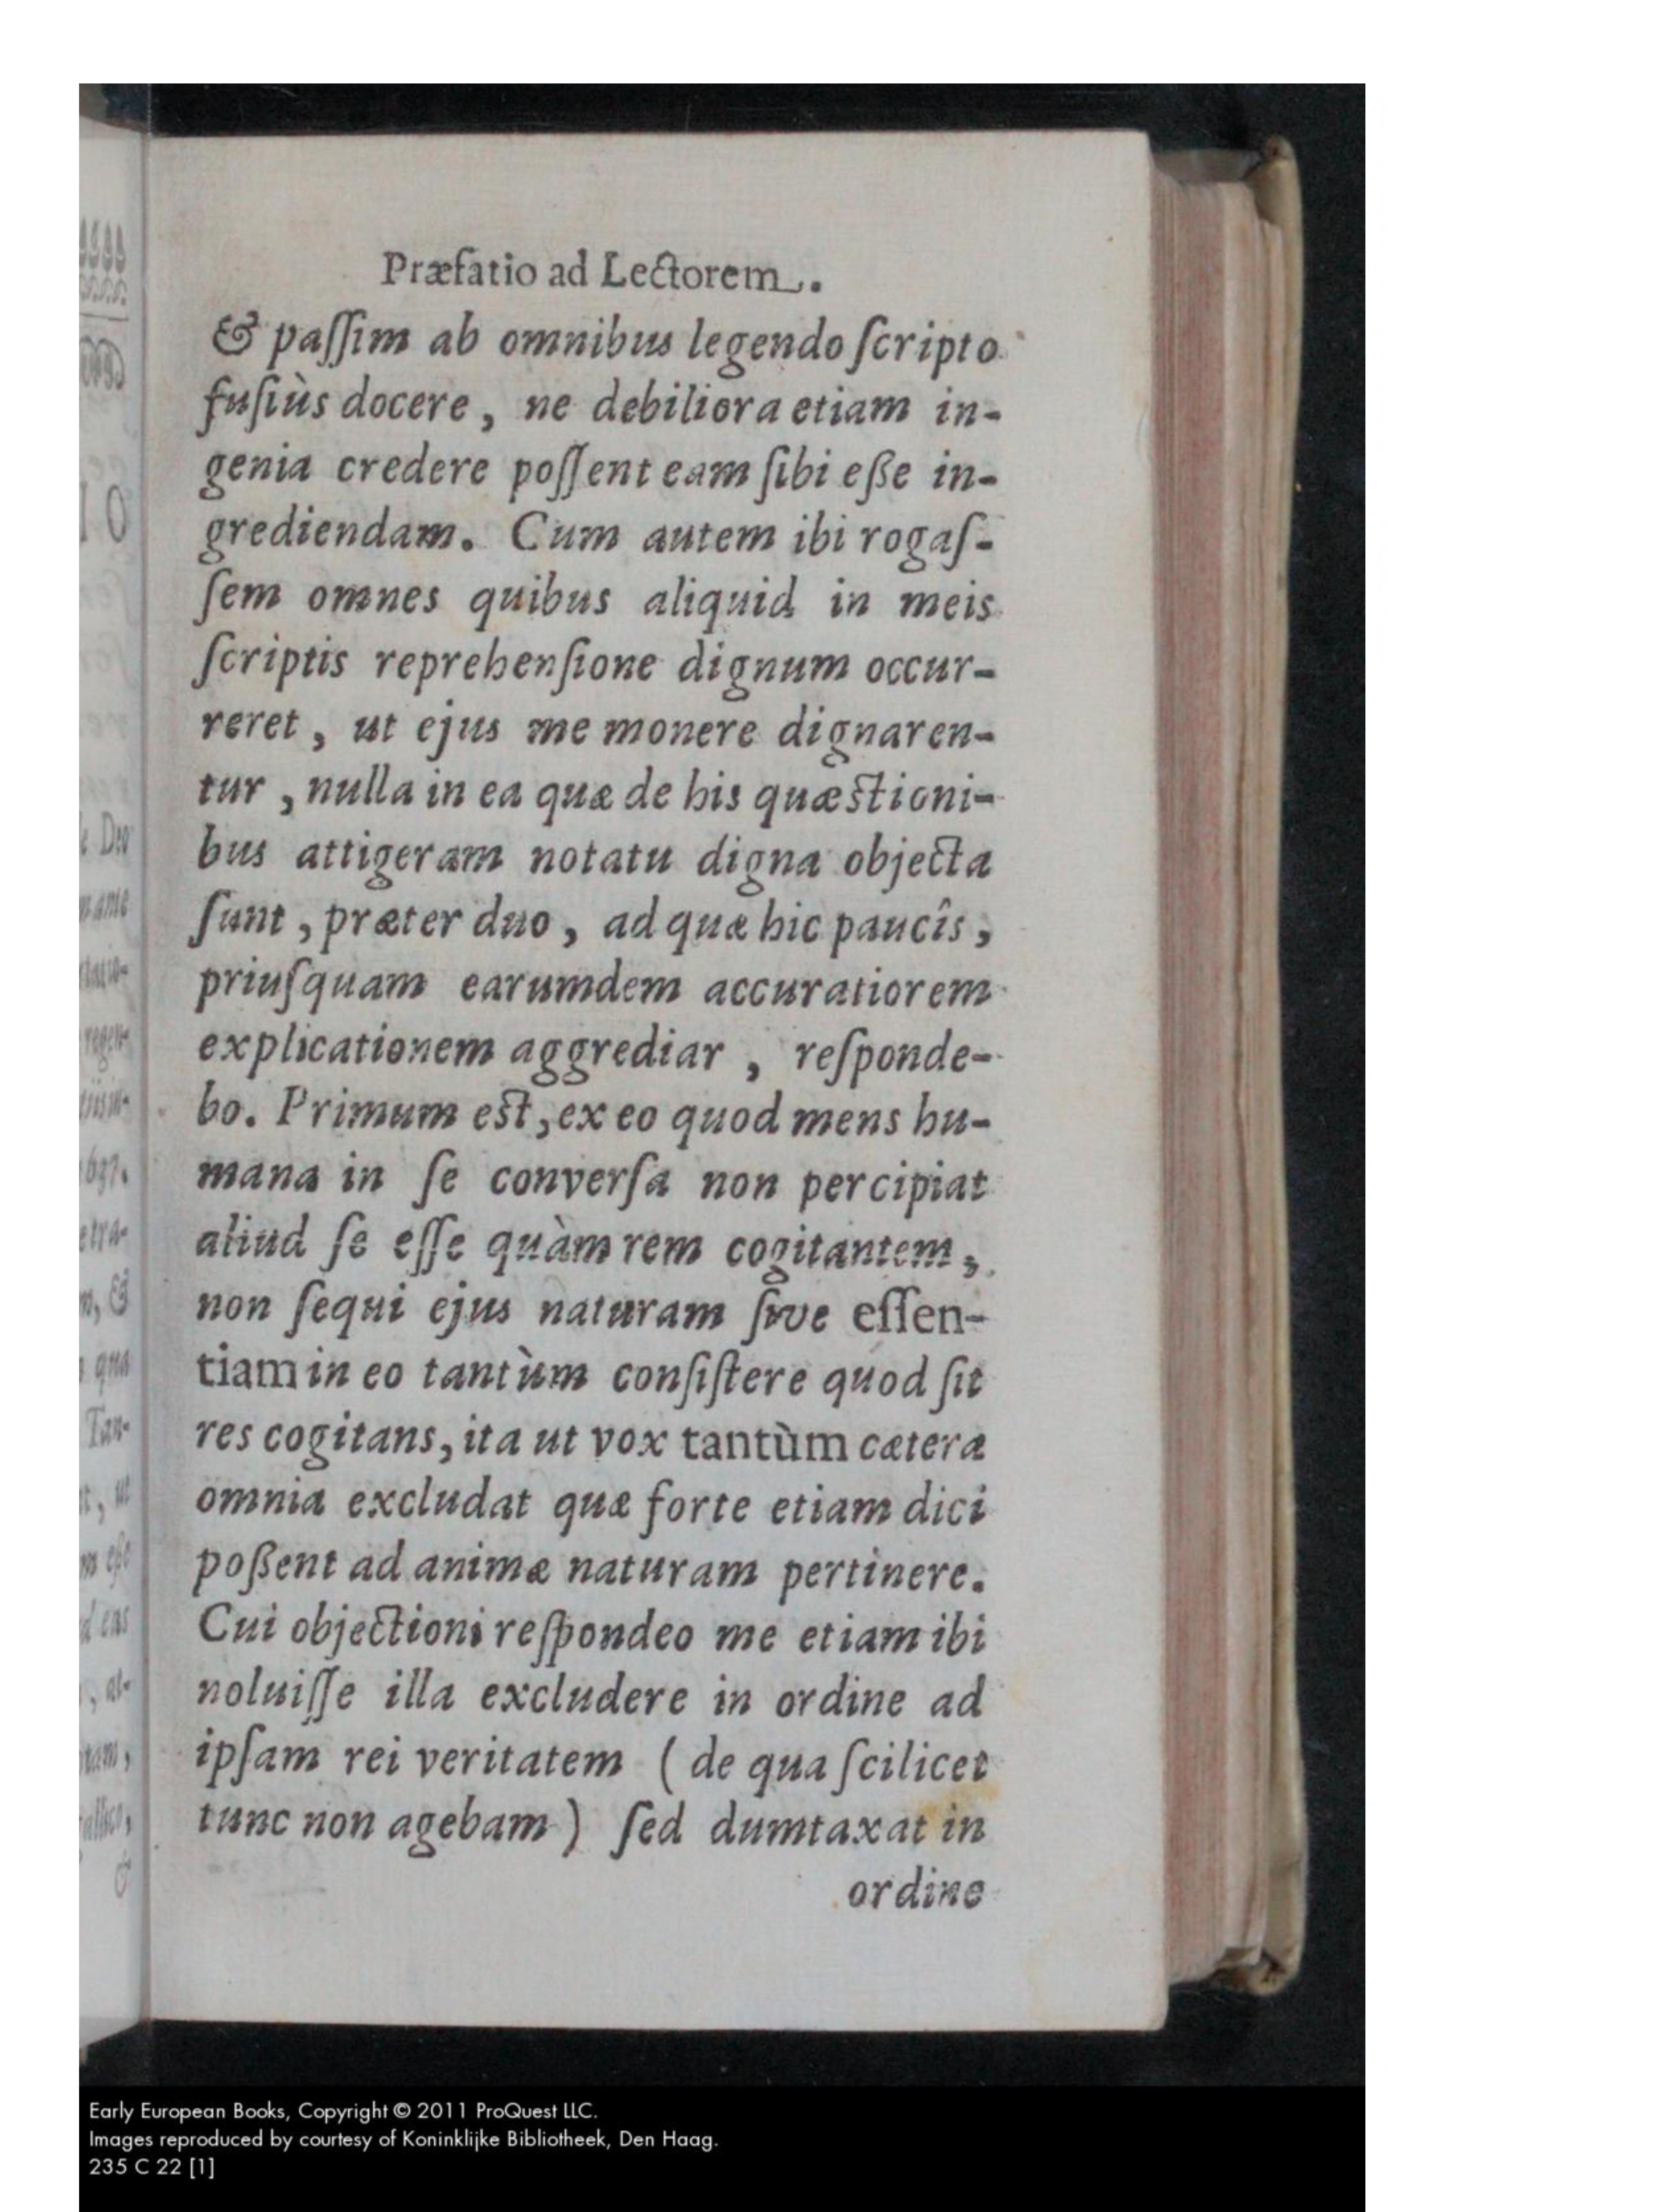 Præfatio ad Lectorem.
& paſſim ab omnibus legendo ſcripto
fuſiùs docere, ne debiliora etiam in-
genia credere poſſent eam ſibi eße in-
grediendam. Cum autem ibi rogaſ-
ſem omnes quibus aliquid in meis
ſcriptis reprehenſione dignum occur-
reret, ut ejus me monere dignaren-
tur, nulla in ea quæ de his quæſtioni-
bus attigeram notatu digna objecta
ſunt, præter duo, ad quæ hic paucîs,
priuſquam earumdem accuratiorem
explicationem aggrediar, reſponde-
bo. Primum eſt, ex eo quod mens hu-
mana in ſe converſa non percipiat
aliud ſe eſſe quàm rem cogitantem,
non ſequi ejus naturam ſive eſſen-
tiam in eo tantùm conſiſtere quod ſit
res cogitans, ita ut vox tantùm cætera
omnia excludat quæ forte etiam dici
poßent ad animæ naturam pertinere.
Cui objectioni reſpondeo me etiam ibi
noluiſſe illa excludere in ordine ad
ipſam rei veritatem (de qua ſcilicet
tunc non agebam) ſed dumtaxat in
ordine
Early European Books, Copyright © 2011 ProQuest LLC.
Images reproduced by courtesy of Koninklijke Bibliotheek, Den Haag.
235 C 22 [1]